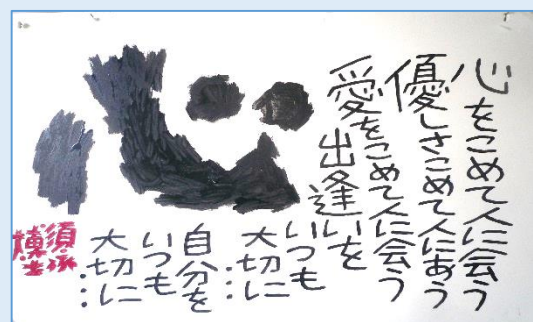 心をこめて人に会う
優しさこめて人にあう
愛をこめて人に会う
出逢いを
いつも
大切に…
自分を
いつも
大切に…
心
須永
博士